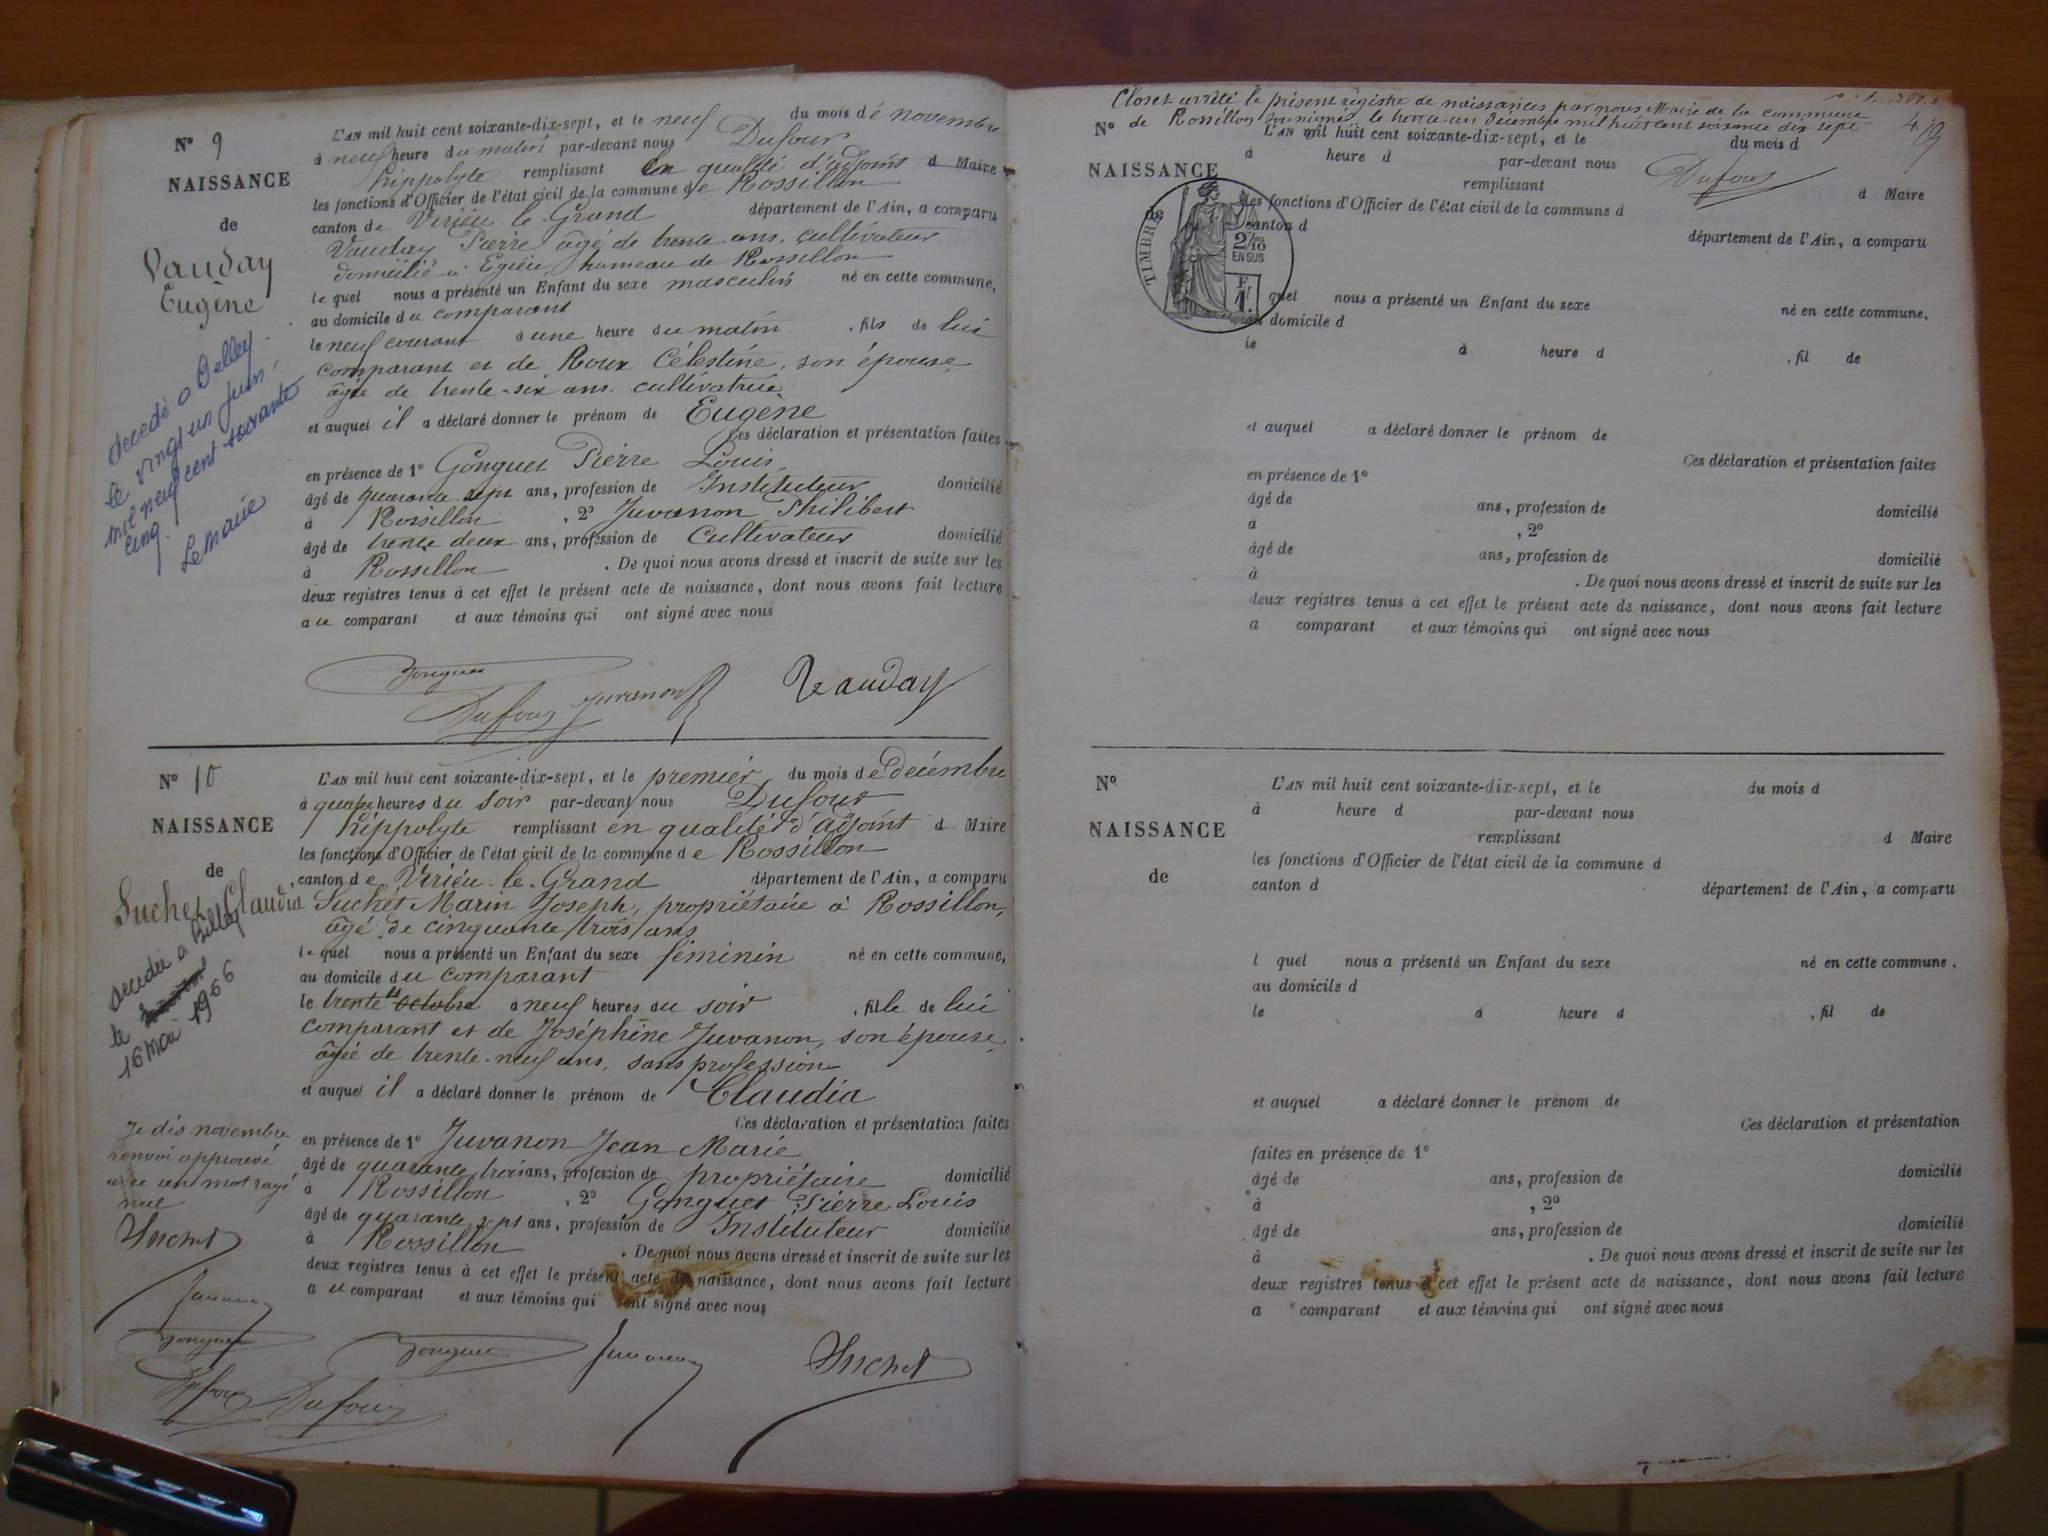 N° 9
NAISSANCE
de
Vauday
Eugène
décédé a Belley
le vingt un juin
mil neuf cent soixante
cinq.
Le Maire
L'AN mil huit cent soixante-dix-sept, et le neuf du mois de novembre
à neuf heure du matin par-devant nous Dufour
hippolyte remplissant en qualité d'adjoint d Maire
les fonctions d'Officier de l'état civil de la commune de Rossillon
canton de Virieu le Grand département de l'Ain, a comparu
Vauday Pierre âgé de trente ans, cultivateur
domicilié à Egieu, hameau de Rossillon
le quel nous a présenté un Enfant du sexe masculin né en cette commune,
au domicile du comparant
le neuf courant à une heure du matin , fils de lui
comparant et de Roux Célestine, son épouse,
âgée de trente-six ans, cultivatrice
et auquel il a déclaré donner le prénom de Eugène
Ces déclaration et présentation faites
en présence de 1° Gonguet Pierre Louis,
âgé de quarante sept ans, profession de Instituteur domicilié
à Rossillon , 2° Juvanon Philibert
âgé de trente deux ans, profession de Cultivateur domicilié
à Rossillon . De quoi nous avons dressé et inscrit de suite sur les
deux registres tenus à cet effet le présent acte de naissance, dont nous avons fait lecture
au comparant et aux témoins qui ont signé avec nous
Gonguet
Dufour Juvanon Vauday
N° 10
NAISSANCE
de
Suchet Claudia
décédée a Belley
le
16 Mai 1966
L'AN mil huit cent soixante-dix-sept, et le premier du mois de décembre
à quatre heures du soir par-devant nous Dufour
hippolyte remplissant en qualité d'adjoint d Maire
les fonctions d'Officier de l'état civil de la commune de Rossillon
canton de Virieu-le-Grand département de l'Ain, a comparu
Suchet Marin Joseph, propriétaire à Rossillon,
âgé de cinquante trois ans
le quel nous a présenté un Enfant du sexe féminin né en cette commune,
au domicile du comparant
le trente octobre à neuf heures du soir , fille de lui
comparant et de Joséphine Juvanon, son épouse,
âgée de trente-neuf ans, sans profession
et auquel il a déclaré donner le prénom de Claudia
Ces déclaration et présentation faites
en présence de 1° Juvanon Jean Marie
âgé de quarante trois ans, profession de propriétaire domicilié
à Rossillon , 2° Gonguet Pierre Louis
âgé de quarante sept ans, profession de Instituteur domicilié
à Rossillon . De quoi nous avons dressé et inscrit de suite sur les
deux registres tenus à cet effet le présent acte de naissance, dont nous avons fait lecture
au comparant et aux témoins qui ont signé avec nous
Je dis novembre
renvoi approuvé
avec un mot rayé
nul
Suchet
Juvanon
Gonguet Gonguet Juvanon Suchet
Dufour Dufour
Clos et arrêté le présent régistre de naissances par nous Maire de la commune
de Rossillon soussigné, le trente un décembre mil huit cent soixante dix sept
419
Dufour
N°
NAISSANCE
de
TIMBRE
2/10
EN SUS
F
1
L'AN mil huit cent soixante-dix-sept, et le du mois d
à heure d par-devant nous
remplissant d Maire
les fonctions d'Officier de l'état civil de la commune d
canton d
département de l'Ain, a comparu
quel nous a présenté un Enfant du sexe né en cette commune,
au domicile d
le à heure d , fil de
et auquel a déclaré donner le prénom de
Ces déclaration et présentation faites
en présence de 1°
âgé de ans, profession de domicilié
à , 2°
âgé de ans, profession de domicilié
à . De quoi nous avons dressé et inscrit de suite sur les
deux registres tenus à cet effet le présent acte de naissance, dont nous avons fait lecture
a comparant et aux témoins qui ont signé avec nous
N°
NAISSANCE
de
L'AN mil huit cent soixante-dix-sept, et le du mois d
à heure d par-devant nous
remplissant d Maire
les fonctions d'Officier de l'état civil de la commune d
canton d
département de l'Ain, a comparu
l quel nous a présenté un Enfant du sexe né en cette commune,
au domicile d
le à heure d , fil de
et auquel a déclaré donner le prénom de
Ces déclaration et présentation
faites en présence de 1°
âgé de ans, profession de domicilié
à , 2°
âgé de ans, profession de domicilié
à . De quoi nous avons dressé et inscrit de suite sur les
deux registres tenus à cet effet le présent acte de naissance, dont nous avons fait lecture
a comparant et aux témoins qui ont signé avec nous